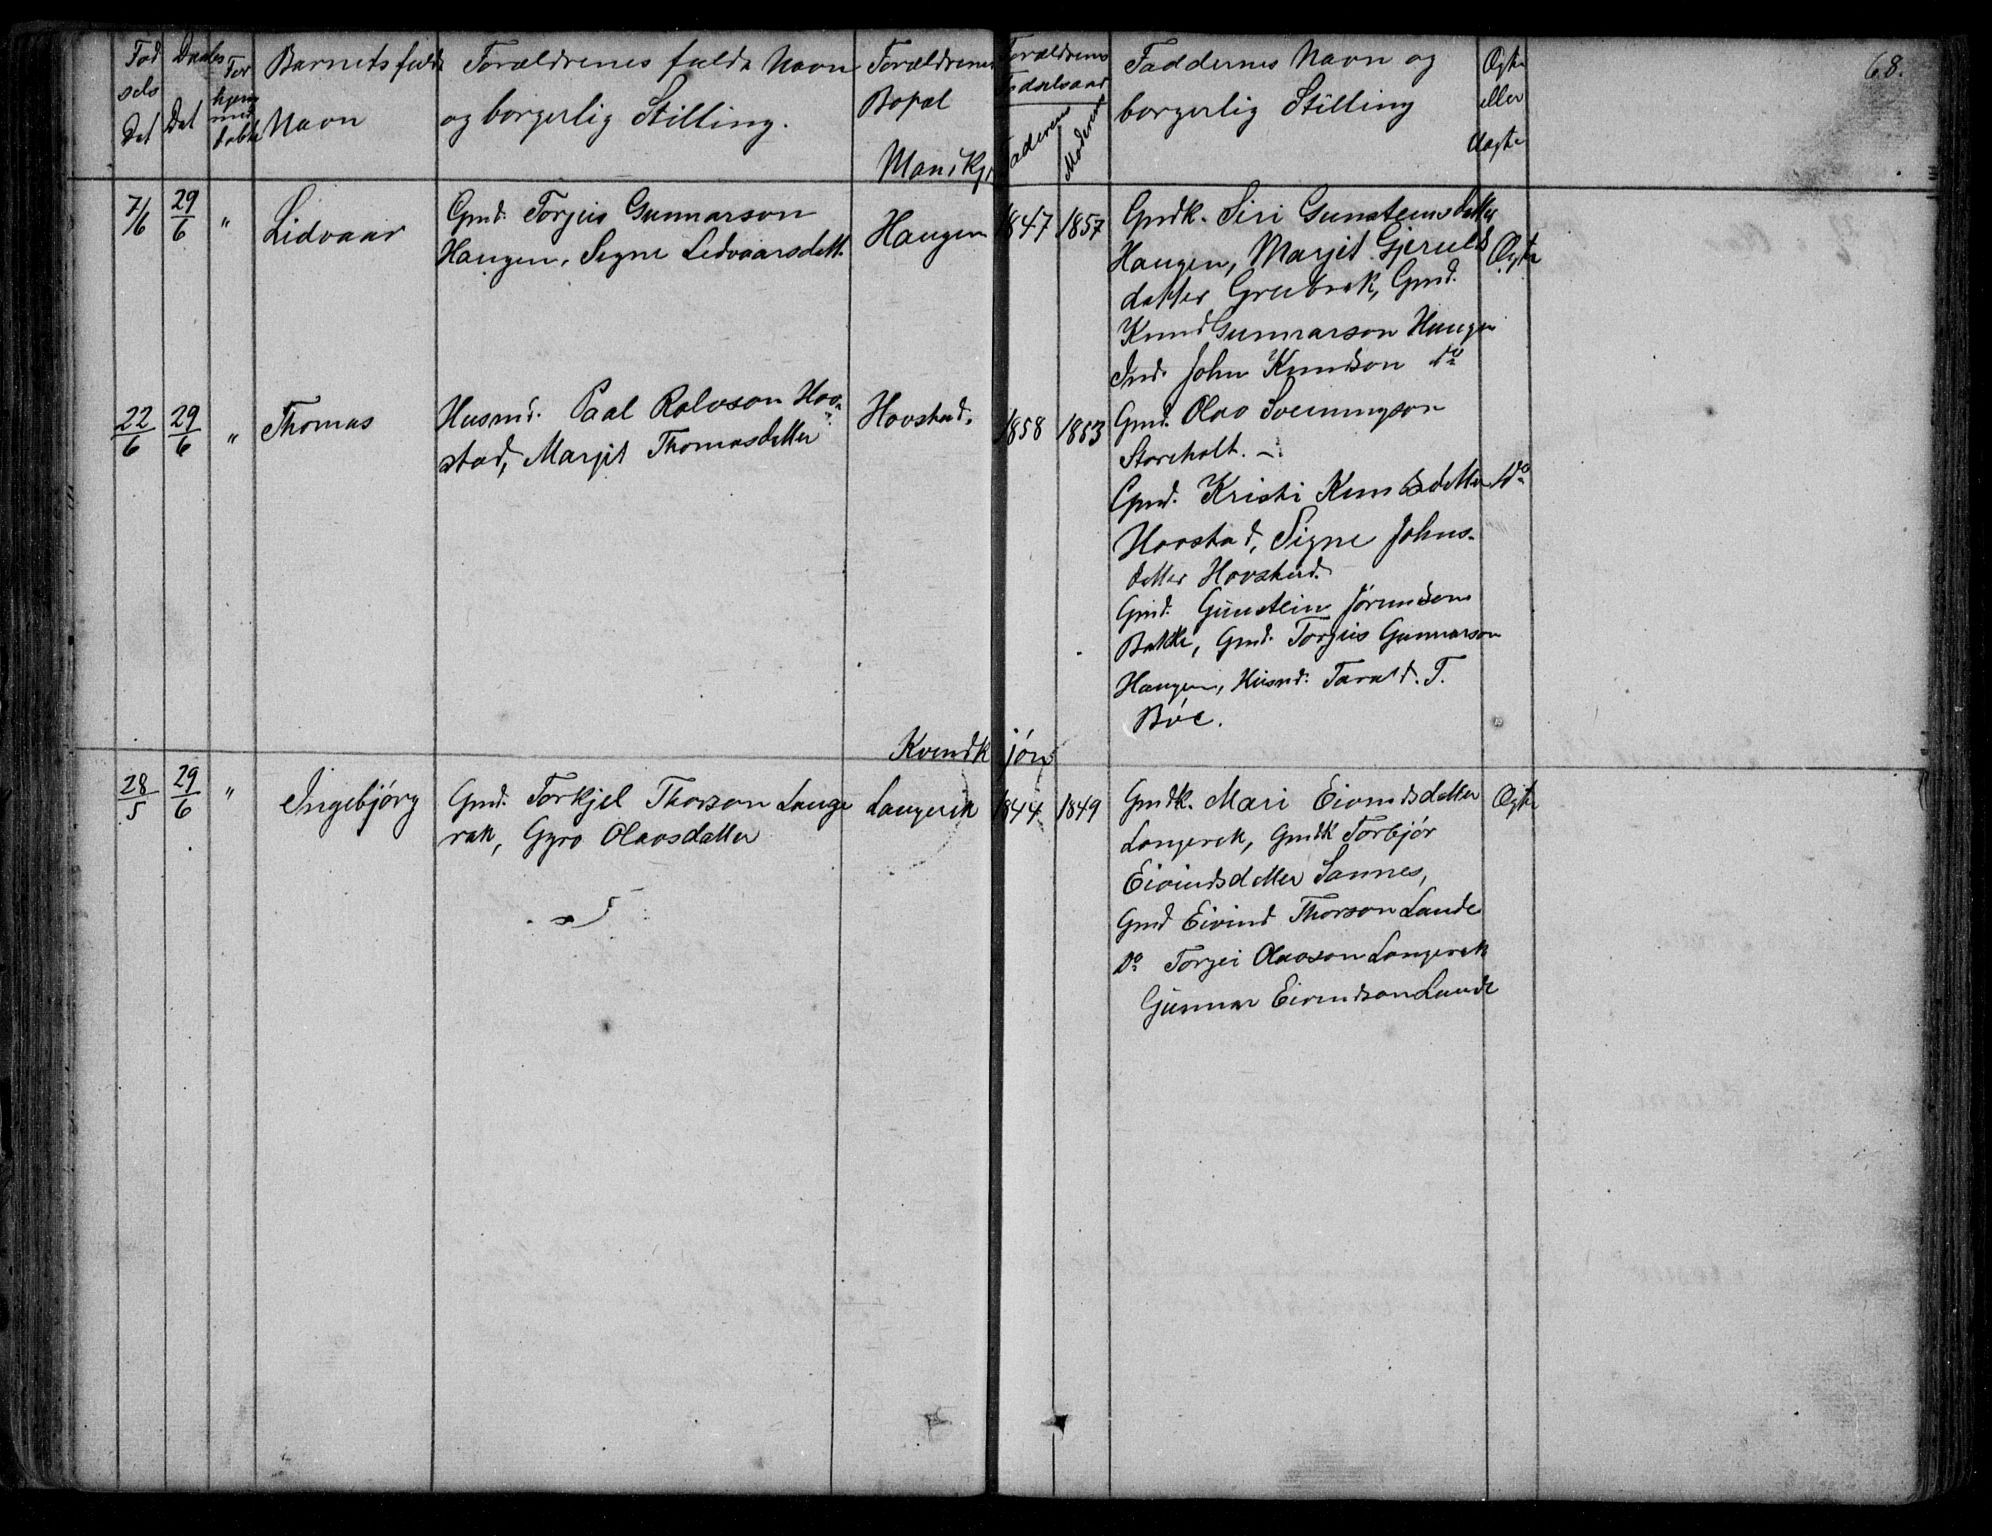 68.
Fød
sels
Dat
Daabs
Dat
For
hjem
med
døbte
Barnets fulde
Navn
Forældrenes fulde Navn
og borgerlig Stilling.
Forældrenes
Bopæl
Mankj.
Forældrenes
Fødselsaar
Faderens
Moderens
Faddernes Navn og
borgerlig Stilling
Ægte
eller
Uægte
7/6 29/6 " Lidvaar
Gmd. Torjus Gunnarson
Haugen, Signe Lidvaarsdatt.
Haugen 1847 1857
Gmdk. Siri Gunsteinsdatter
Haugen, Marjit Gjerulds
datter Grubræk, Gmd.
Knud Gunnarson Haugen
Ind. John Knudson do
Ægte
22/6 29/6 " Thomas
Husmd. Paal Rolvson Hov-
stad, Marjit Thomasdatter
Hovstad. 1858 1853
Gmd. Olav Sveinungson
Storeholt.
Gmd. Kristi Knudsdatter
Hovstad, Signe Johns-
datter Hovstad.
Gmd. Gunstein Jørundson
Bakke, Gmd. Torjus Gunnarson
Haugen, Husmd. Tarald. T.
Bøe.
do
Kvindkjøn
28/5 29/6 " Ingebjörg
Gmd. Torkjel Thorson Lange
rak, Gyro Olavsdatter
Langerak 1844 1849
Gmdk. Mari Eivindsdatter
Langerak, Gmdk Torbjör
Eivindsdatter Sannes,
Gmd Eivind Thorson Lande
Do Torjei Olavson Langerak
Gunnar Eivindson Lande
Ægte